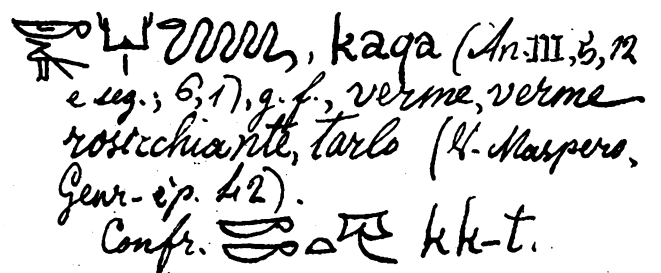 , kaqa (An. III, 5, 12
e seg.; 6, 1), g. f., verme, verme
rosicchiante, tarlo (V. Maspero,
Genr-ép. 42).
Confr. kk-t.